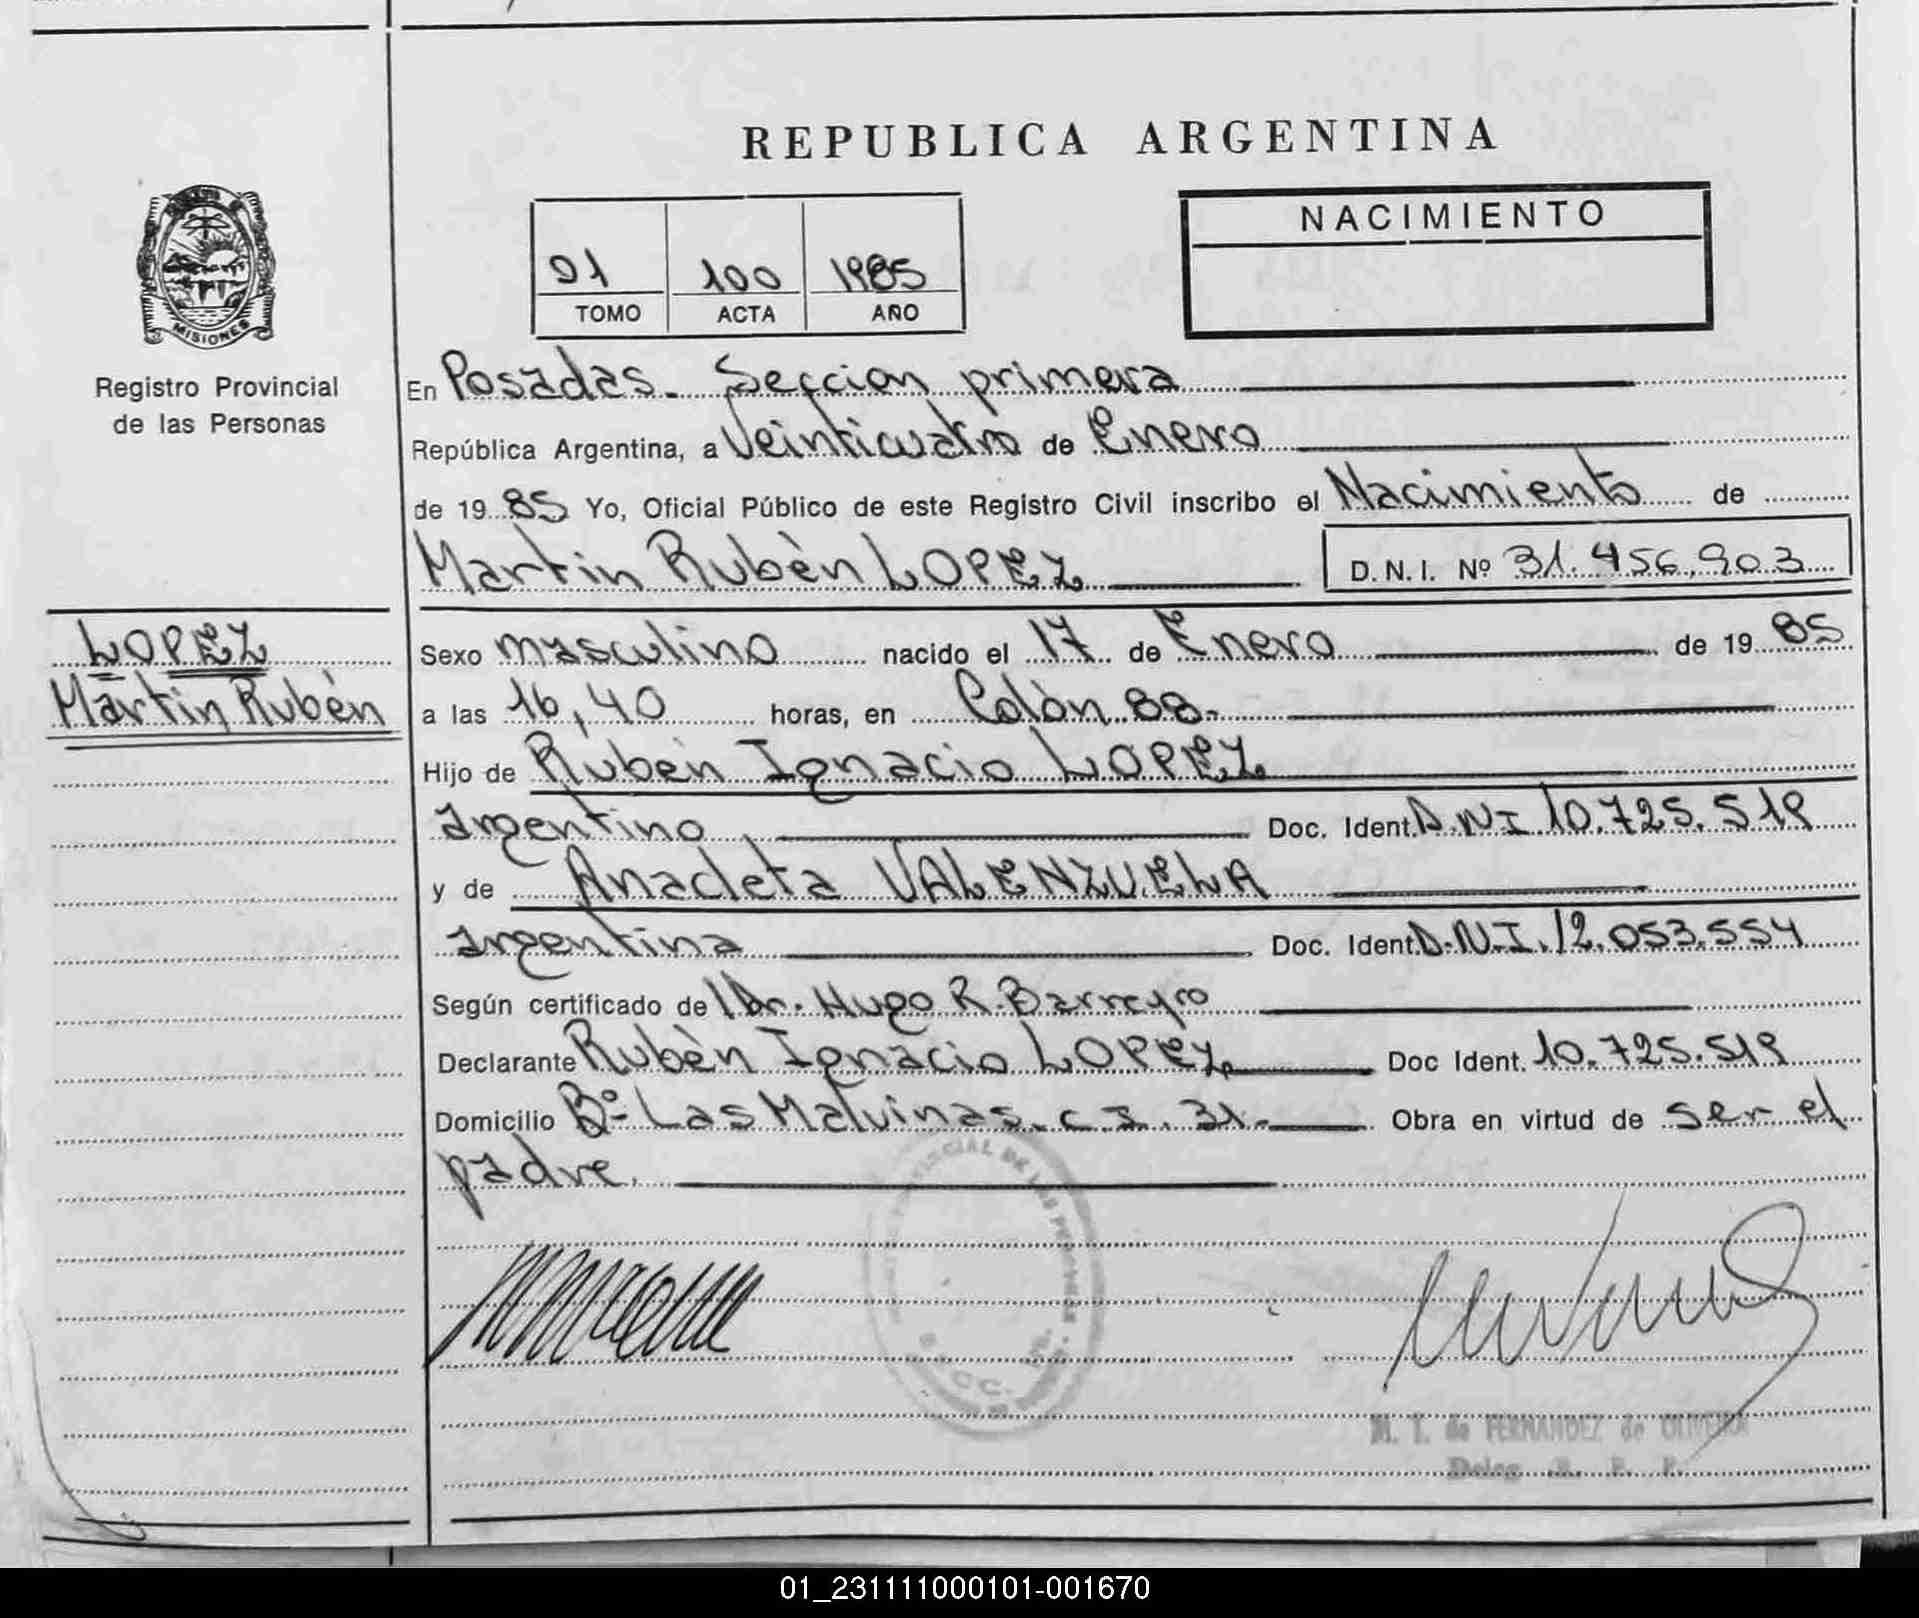 REPUBLICA ARGENTINA
01 100 1985
TOMO ACTA AÑO
NACIMIENTO
MISIONES
Registro Provincial
de las Personas
En Posadas. Seccion primera
República Argentina, a Veinticuatro de Enero
de 1985 Yo, Oficial Público de este Registro Civil inscribo el Nacimiento de
Martin Rubèn LOPEZ D.N.I. Nº 31.456.903
LOPEZ
Martin Rubèn
Sexo masculino nacido el 17 de Enero de 1985
a las 16,40 horas, en Colòn 88.
Hijo de Rubèn Ignacio LOPEZ
argentino, Doc. Ident. D.N.I 10.725.519
y de Anacleta VALENZUELA
argentina Doc. Ident. D.N.I. 12.053.554
Según certificado de Dr. Hugo R. Barreyro
Declarante Rubèn Ignacio LOPEZ Doc Ident. 10.725.519
Domicilio Bº Las Malvinas. c s. 31. Obra en virtud de ser el
padre.
PROVINCIAL DE LAS PERSONAS
M. T. de FERNANDEZ de OLIVEIRA
Deleg. R. P. P.
01_231111000101-001670